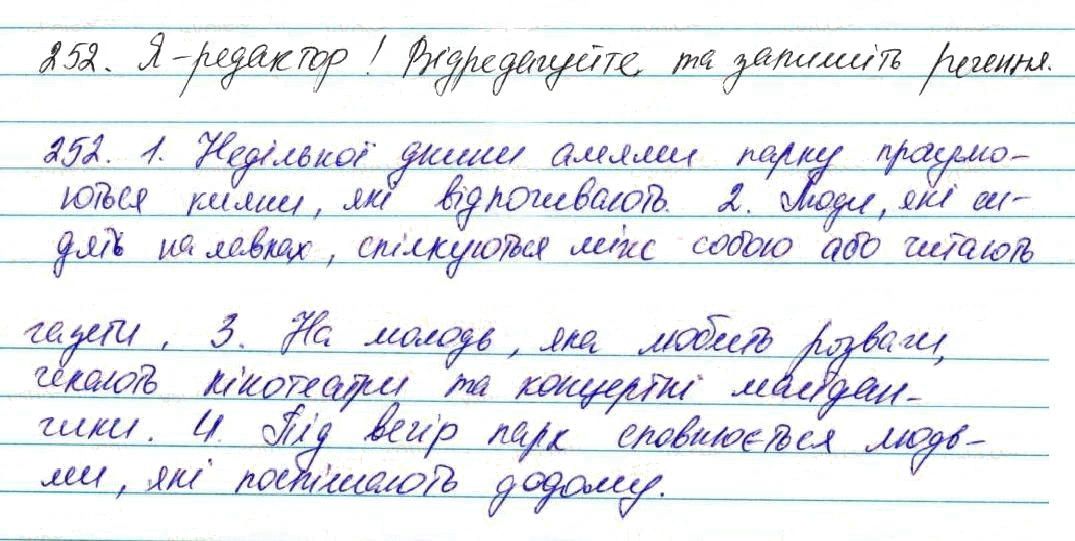 252. Я - редактор! Відредагуйте та запишіть речення.
252. 1. Недільної днини алеями парку прогулю-
ються кияни, які відпочивають. 2. Люди, які си-
дять на лавках, спілкуються між собою або читають
газети, 3. На молодь, яка любить розваги,
чекають кінотеатри та концертні майдан-
чики. 4. Під вечір парк сповнюється людь-
ми, які поспішають додому.